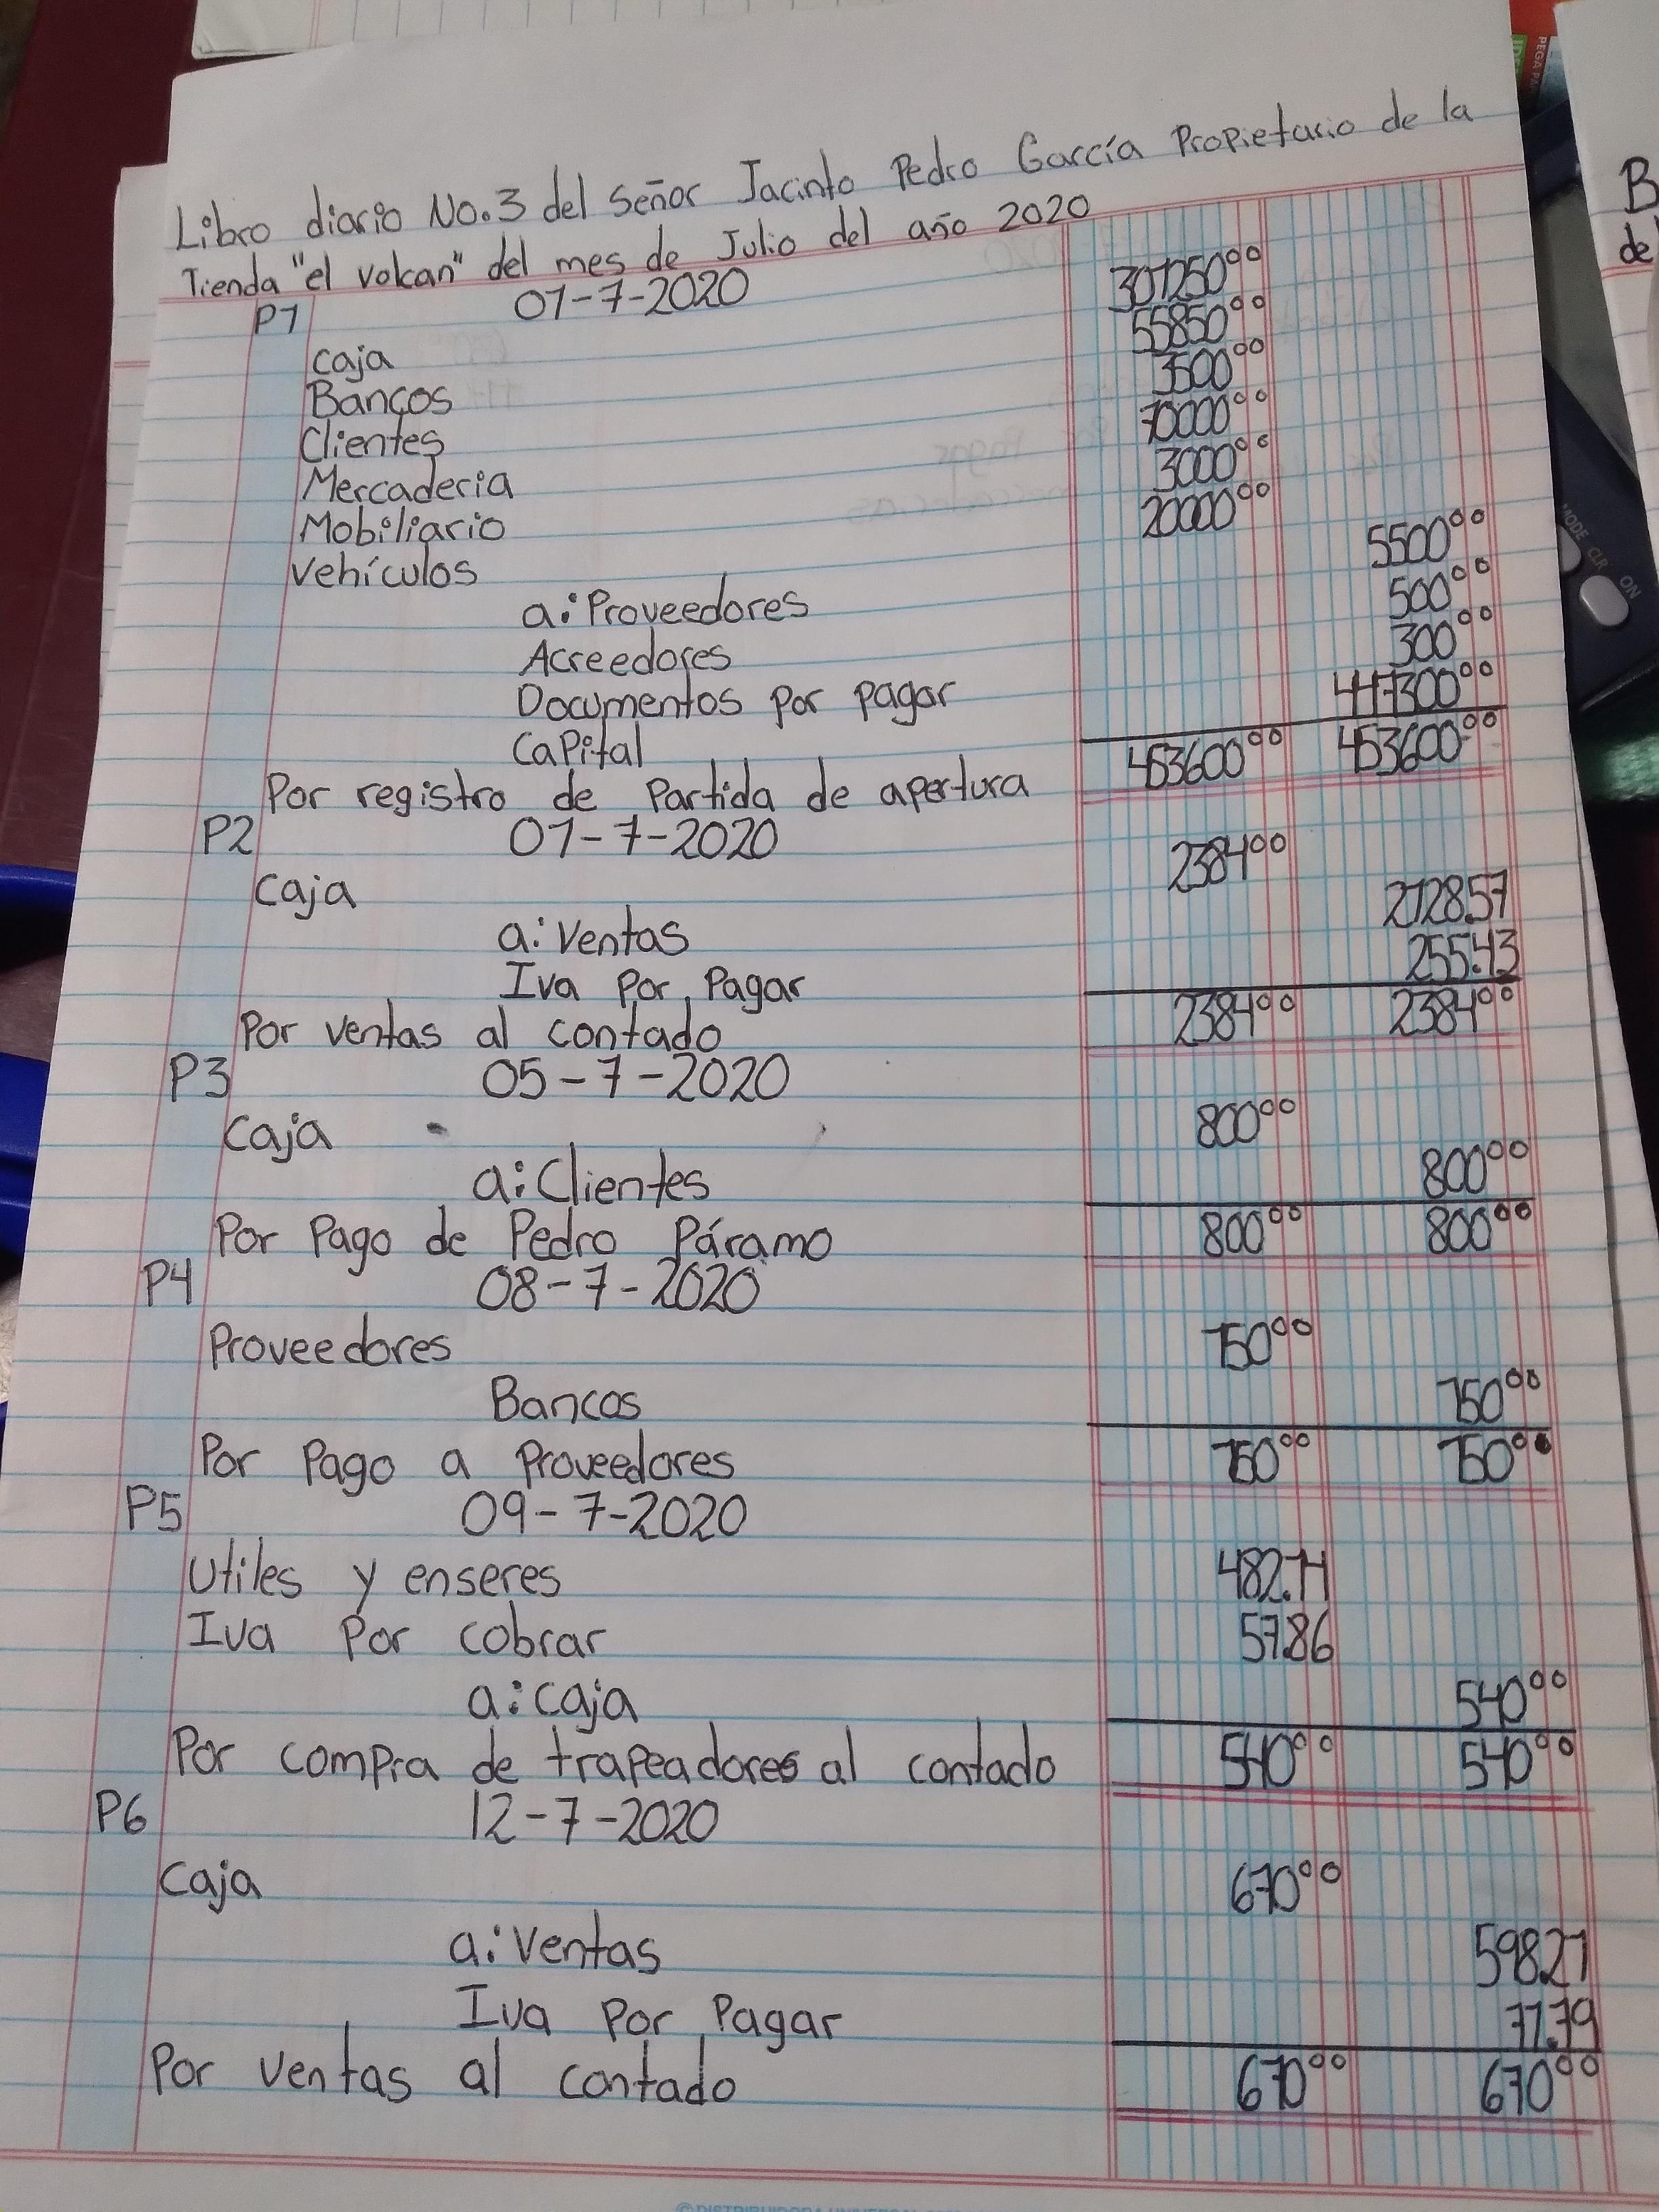 Libro diario No.3 del señor Jacinto Pedro García Propietario de la
Tienda "el volcan" del mes de Julio del año 2020
P1 01-7-2020
Caja 301250⁰⁰
Bancos 55850⁰⁰
Clientes 3500⁰⁰
Mercaderia 70000⁰⁰
Mobiliario 3000⁰⁰
Vehículos 20000⁰⁰
a: Proveedores 5500⁰⁰
Acreedores 500⁰⁰
Documentos por pagar 300⁰⁰
Capital 447300⁰⁰
Por registro de Partida de apertura 453600⁰⁰ 453600⁰⁰
P2 01-7-2020
Caja 2384⁰⁰
a: Ventas 2128.57
Iva Por Pagar 255.43
Por ventas al contado 2384⁰⁰ 2384⁰⁰
P3 05-7-2020
Caja 800⁰⁰
a: Clientes 800⁰⁰
Por Pago de Pedro Páramo 800⁰⁰ 800⁰⁰
P4 08-7-2020
Proveedores 750⁰⁰
Bancos 750⁰⁰
Por Pago a Proveedores 750⁰⁰ 750⁰⁰
P5 09-7-2020
Utiles y enseres 482.14
Iva Por cobrar 57.86
a: caja 540⁰⁰
Por compra de trapeadores al contado 540⁰⁰ 540⁰⁰
P6 12-7-2020
Caja 670⁰⁰
a: Ventas 598.21
Iva Por Pagar 71.79
Por ventas al contado 670⁰⁰ 670⁰⁰
B
de
MODE CLR ON